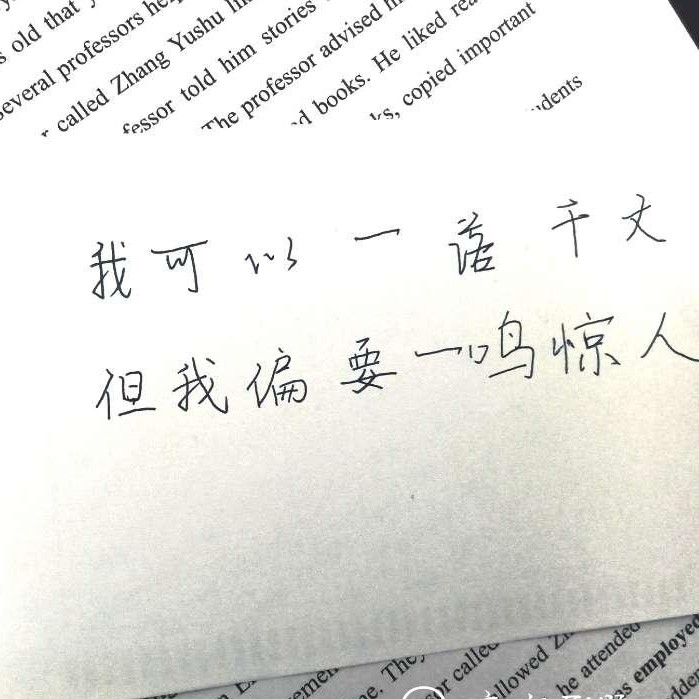 s old that
several professors
called Zhang Yushu
fessor told him stories
The professor advised
d books. He liked
copied important
dents
我可以一落千丈
但我偏要一鸣惊人
The
called
llowed
he attended
employe